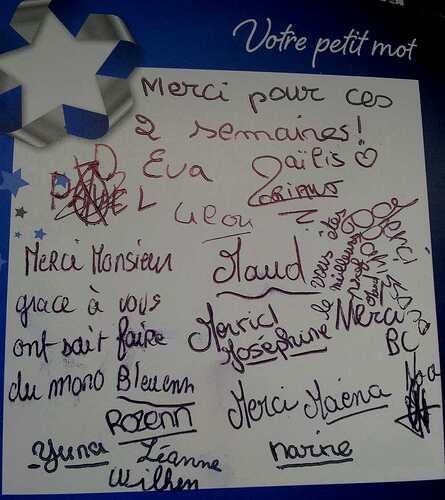 Votre petit mot
Merci pour ces
2 semaines!
Eva
aïlis
PAVEL
Maud
Merci Monsieur
grace à vous
ont sait faire
du mono Bleuenn
vous êtes
le meilleur
prof
Merci
Joséphine
Merci
BC
Rozenn
Merci Maéna
Yuna
Léanne
narine